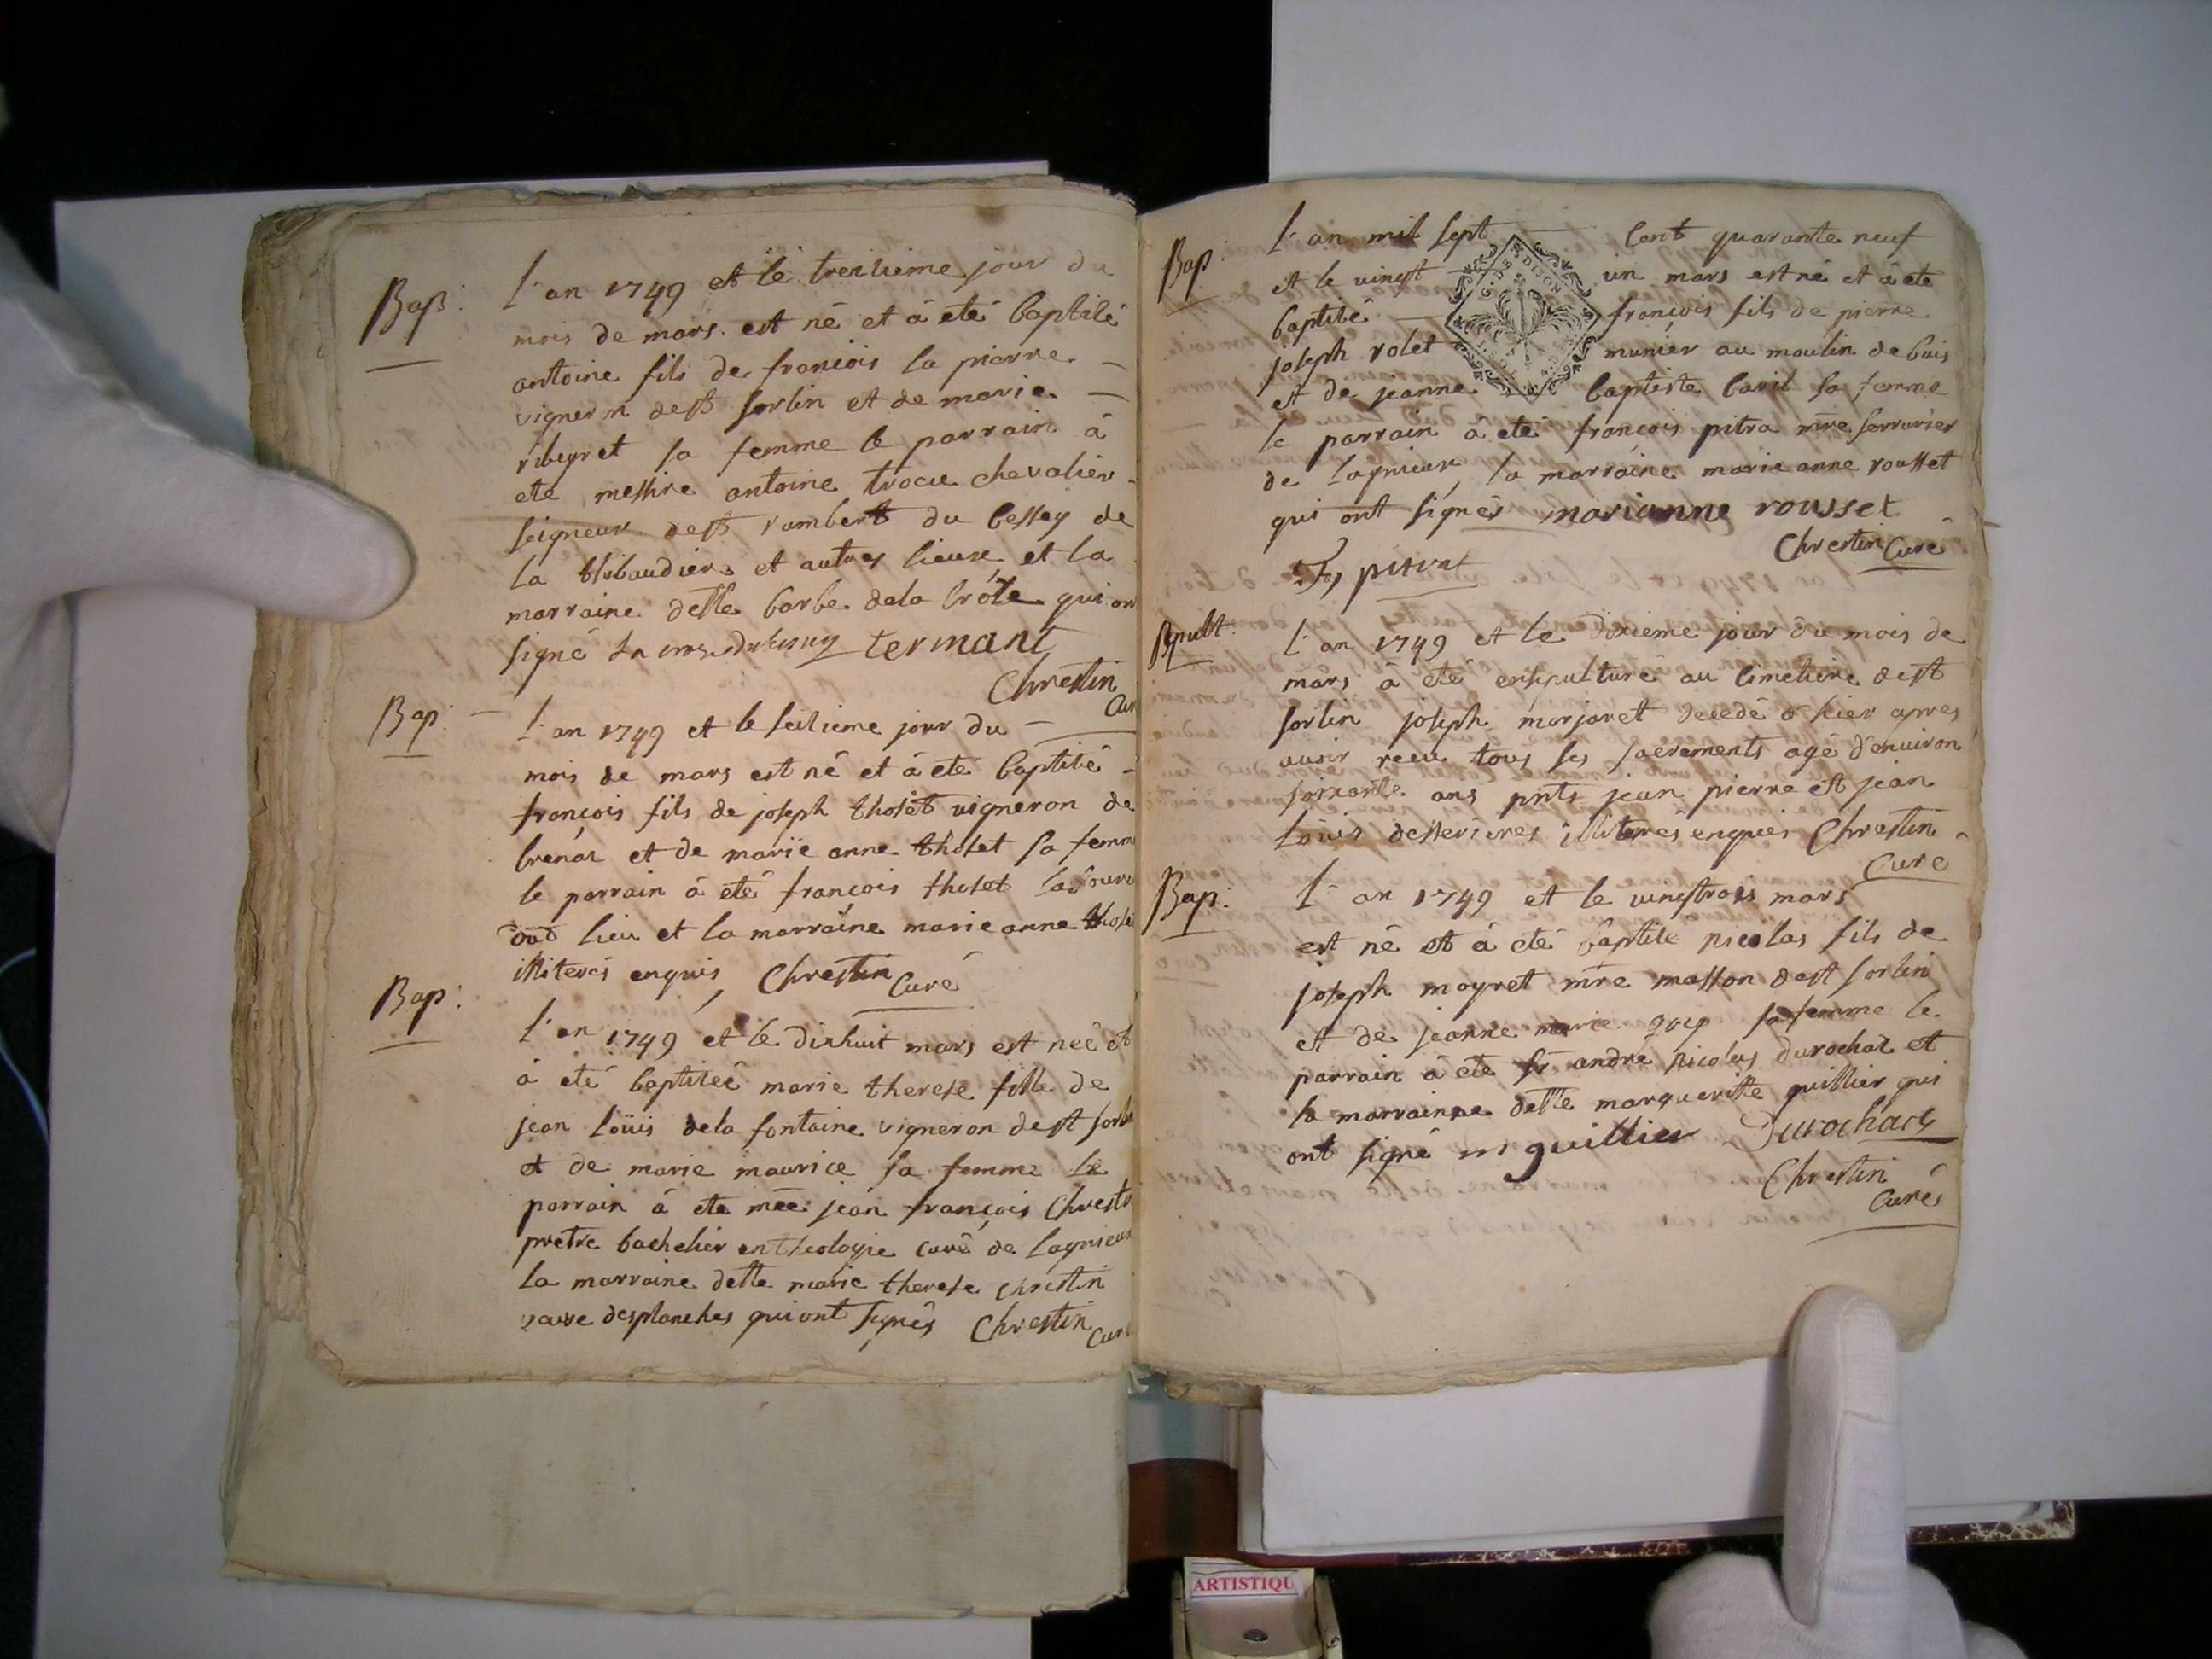 Bap:
L'an 1749 et le treizieme jour du
mois de mars est né et à eté baptisé
antoine fils de francois la pierre
vigneron de st sorlin et de marie
ribeyret sa femme le parrain à
eté messire antoine trocu chevalier
seigneur de st rambert du bessey de
la thibaudiere et autres lieux et la
marraine delle barbe dela cróze qui ont
signé termant
Chrestin
Curé
Bap:
L'an 1749 et le seizieme jour du
mois de mars est né et à eté baptisé
françois fils de joseph tholet vigneron de
brenaz et de marie anne tholet sa femme
le parrain à eté françois tholet
dud lieu et la marraine marie anne tholet
illiterés enquis Chrestin Curé
Bap:
L'an 1749 et le dixhuit mars est neé et
à eté baptiseé marie therese fille de
jean loüis dela fontaine vigneron de st sorlin
et de marie maurice sa femme le
parrain à eté jean françois Chrestin
pretre bachelier en theologie curé de lagnieux
la marraine delle marie therese chrestin
veuve desplanches qui ont signés Chrestin Curé
Bap:
L'an mil sept cent quarante neuf
et le vingt un mars est né et à eté
baptisé françois fils de pierre
joseph rolet munier au moulin de buis
et de jeanne baptiste baril sa femme
le parrain a eté françois pitra mre serrurier
de lagnieux la marraine marie anne rousset
qui ont signés marianne rousset
Chrestin Curé
G. DE DIJON
Sepult:
L'an 1749 et le dixieme jour du mois de
mars à eté ensepulturé au cimetiere de st
sorlin joseph marjaret decedé d'hier apres
avoir recu tous ses sacrements agé d'environ
soixante ans pnts jean pierre et jean
loüis illiterés enquis Chrestin
Curé
Bap:
L'an 1749 et le vingtrois mars
est né et à eté baptisé nicolas fils de
joseph moyret mre masson de st sorlin
et de jeanne marie goy sa femme le
parrain à eté sr andré nicolas durochat et
la marrainne delle margueritte guillier qui
ont signé m guillier Durochat
Chrestin
Curé
ARTISTIQU